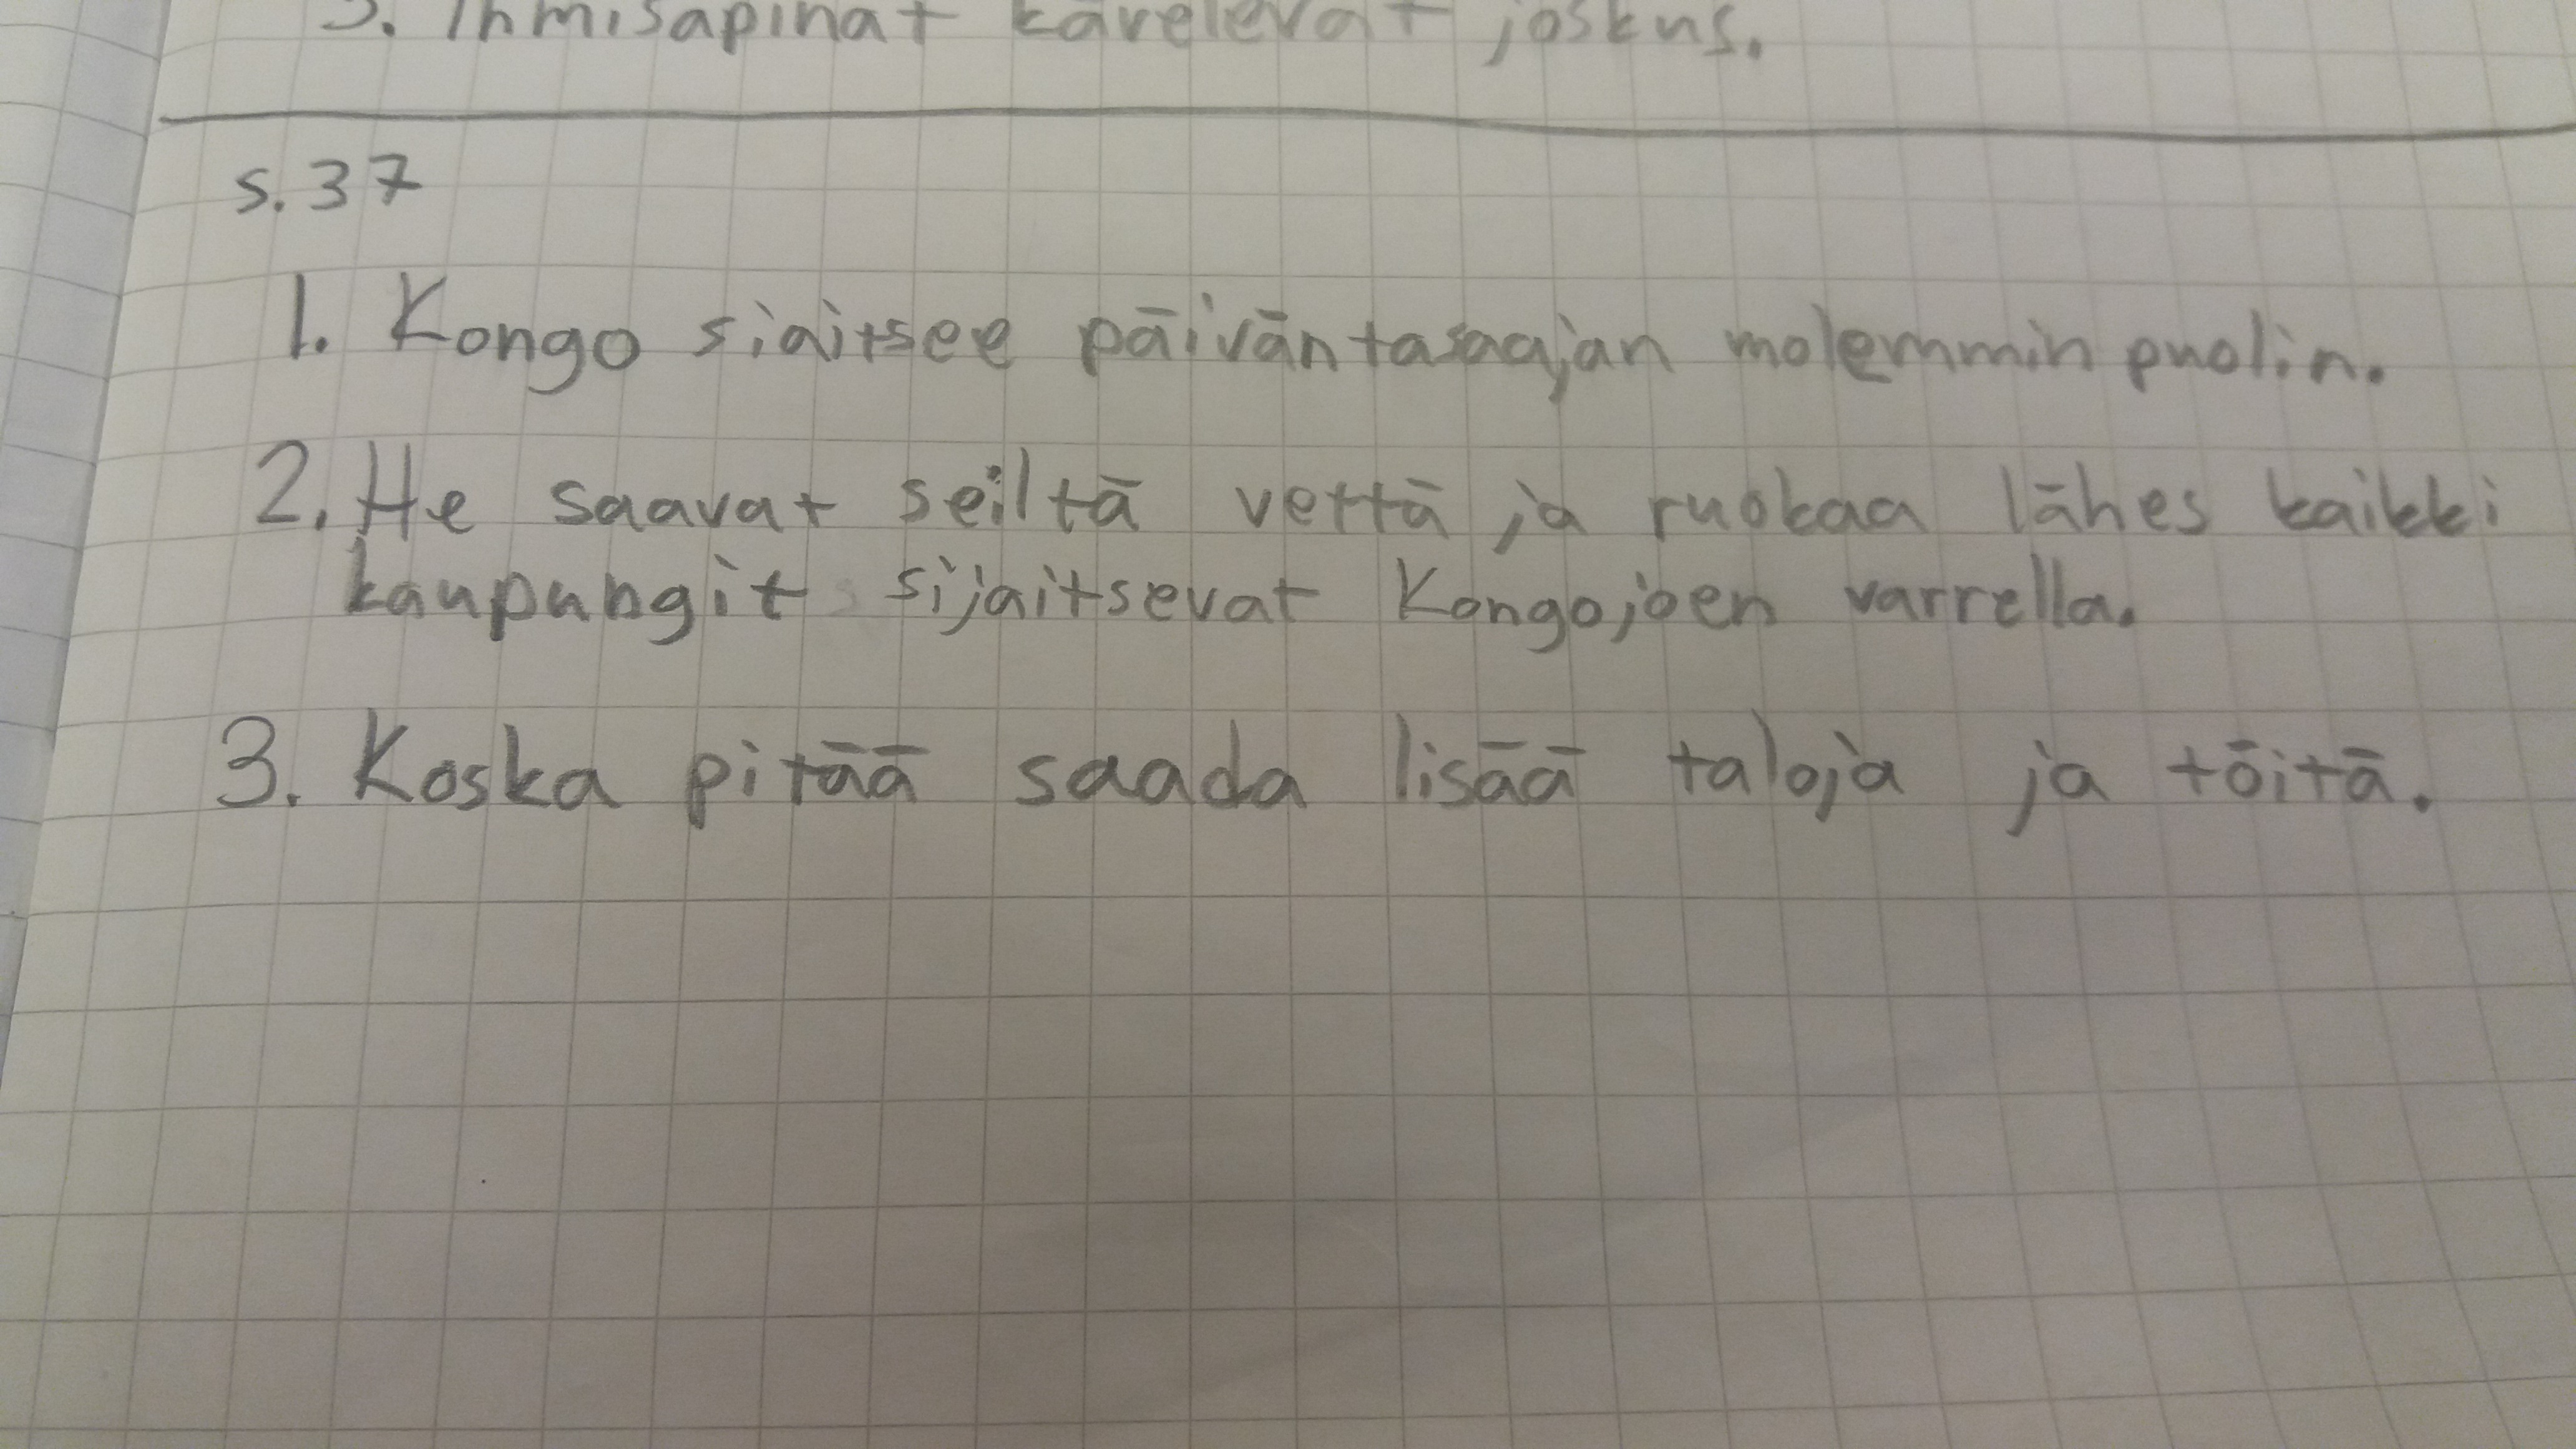 5. Ihmisapinat kävelevät joskus.
s. 37
1. Kongo siaitsee päiväntasaajan molemmin puolin.
2. He saavat seiltä vettä ja ruokaa lähes kaikki
kaupungit sijaitsevat Kongojoen varrella.
3. Koska pitää saada lisää taloja ja töitä.